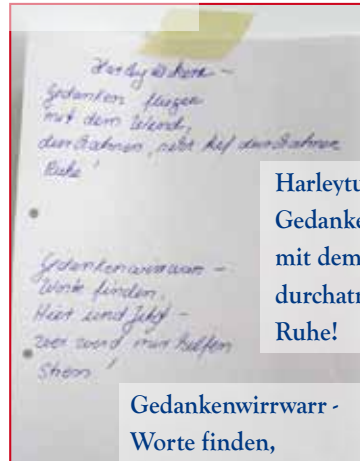 Gedanken fliegen
mit dem Wind,
durchatmen, tief durchatmen
Ruhe!
Gedankenwirrwarr -
Worte finden,
Hier und Jetzt -
wer wird mir helfen
Harleytu
Gedanke
mit dem
durchatr
Ruhe!
Gedankenwirrwarr -
Worte finden,